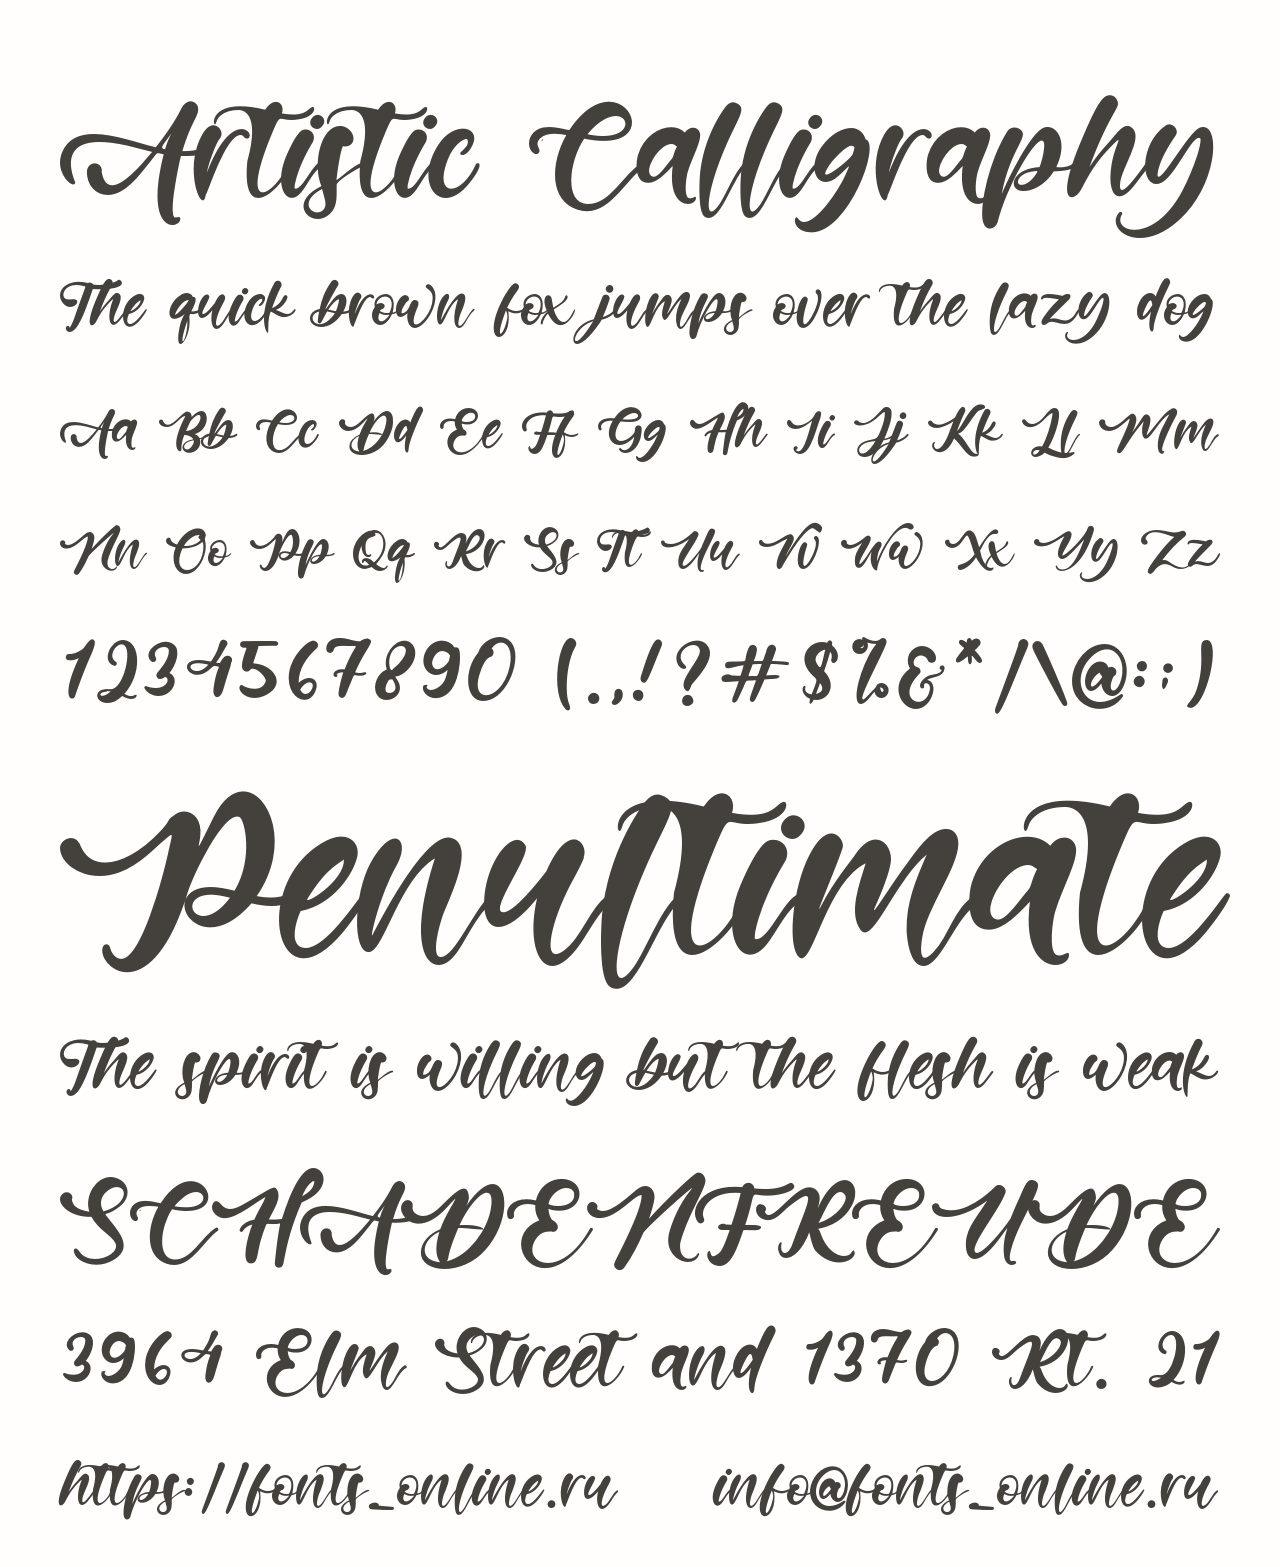 Artistic Calligraphy
The quick brown fox jumps over the lazy dog
Aa Bb Cc Dd Ee Ff Gg Hh Ii Jj Kk Ll Mm
Nn Oo Pp Qq Rr Ss Tt Uu Vv Ww Xx Yy Zz
1234567890 (.,!?#$%&*/\@:;)
Penultimate
The spirit is willing but the flesh is weak
SCHADENFREUDE
3964 Elm Street and 1370 Rt. 21
https://fonts_online.ru info@fonts_online.ru